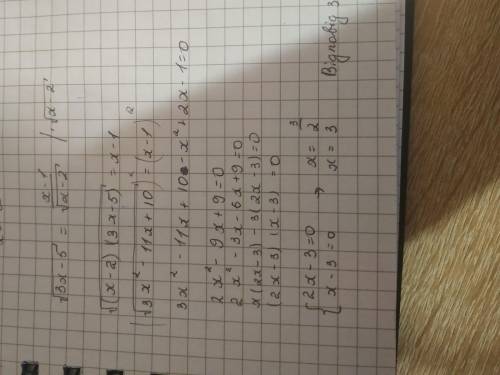 √3x-5 = x-1/√x-2 | ·√x-2
√(x-2)(3x-5) = x-1
(√3x² - 11x + 10)² = (x-1)²
3x² - 11x + 10 - x² + 2x - 1 = 0
2x² - 9x + 9 = 0
2x² - 3x - 6x + 9 = 0
x(2x-3) - 3(2x-3) = 0
(2x+3) (x-3) = 0
{ 2x-3=0 → x = 3/2
x-3=0 x = 3
Відповід 3